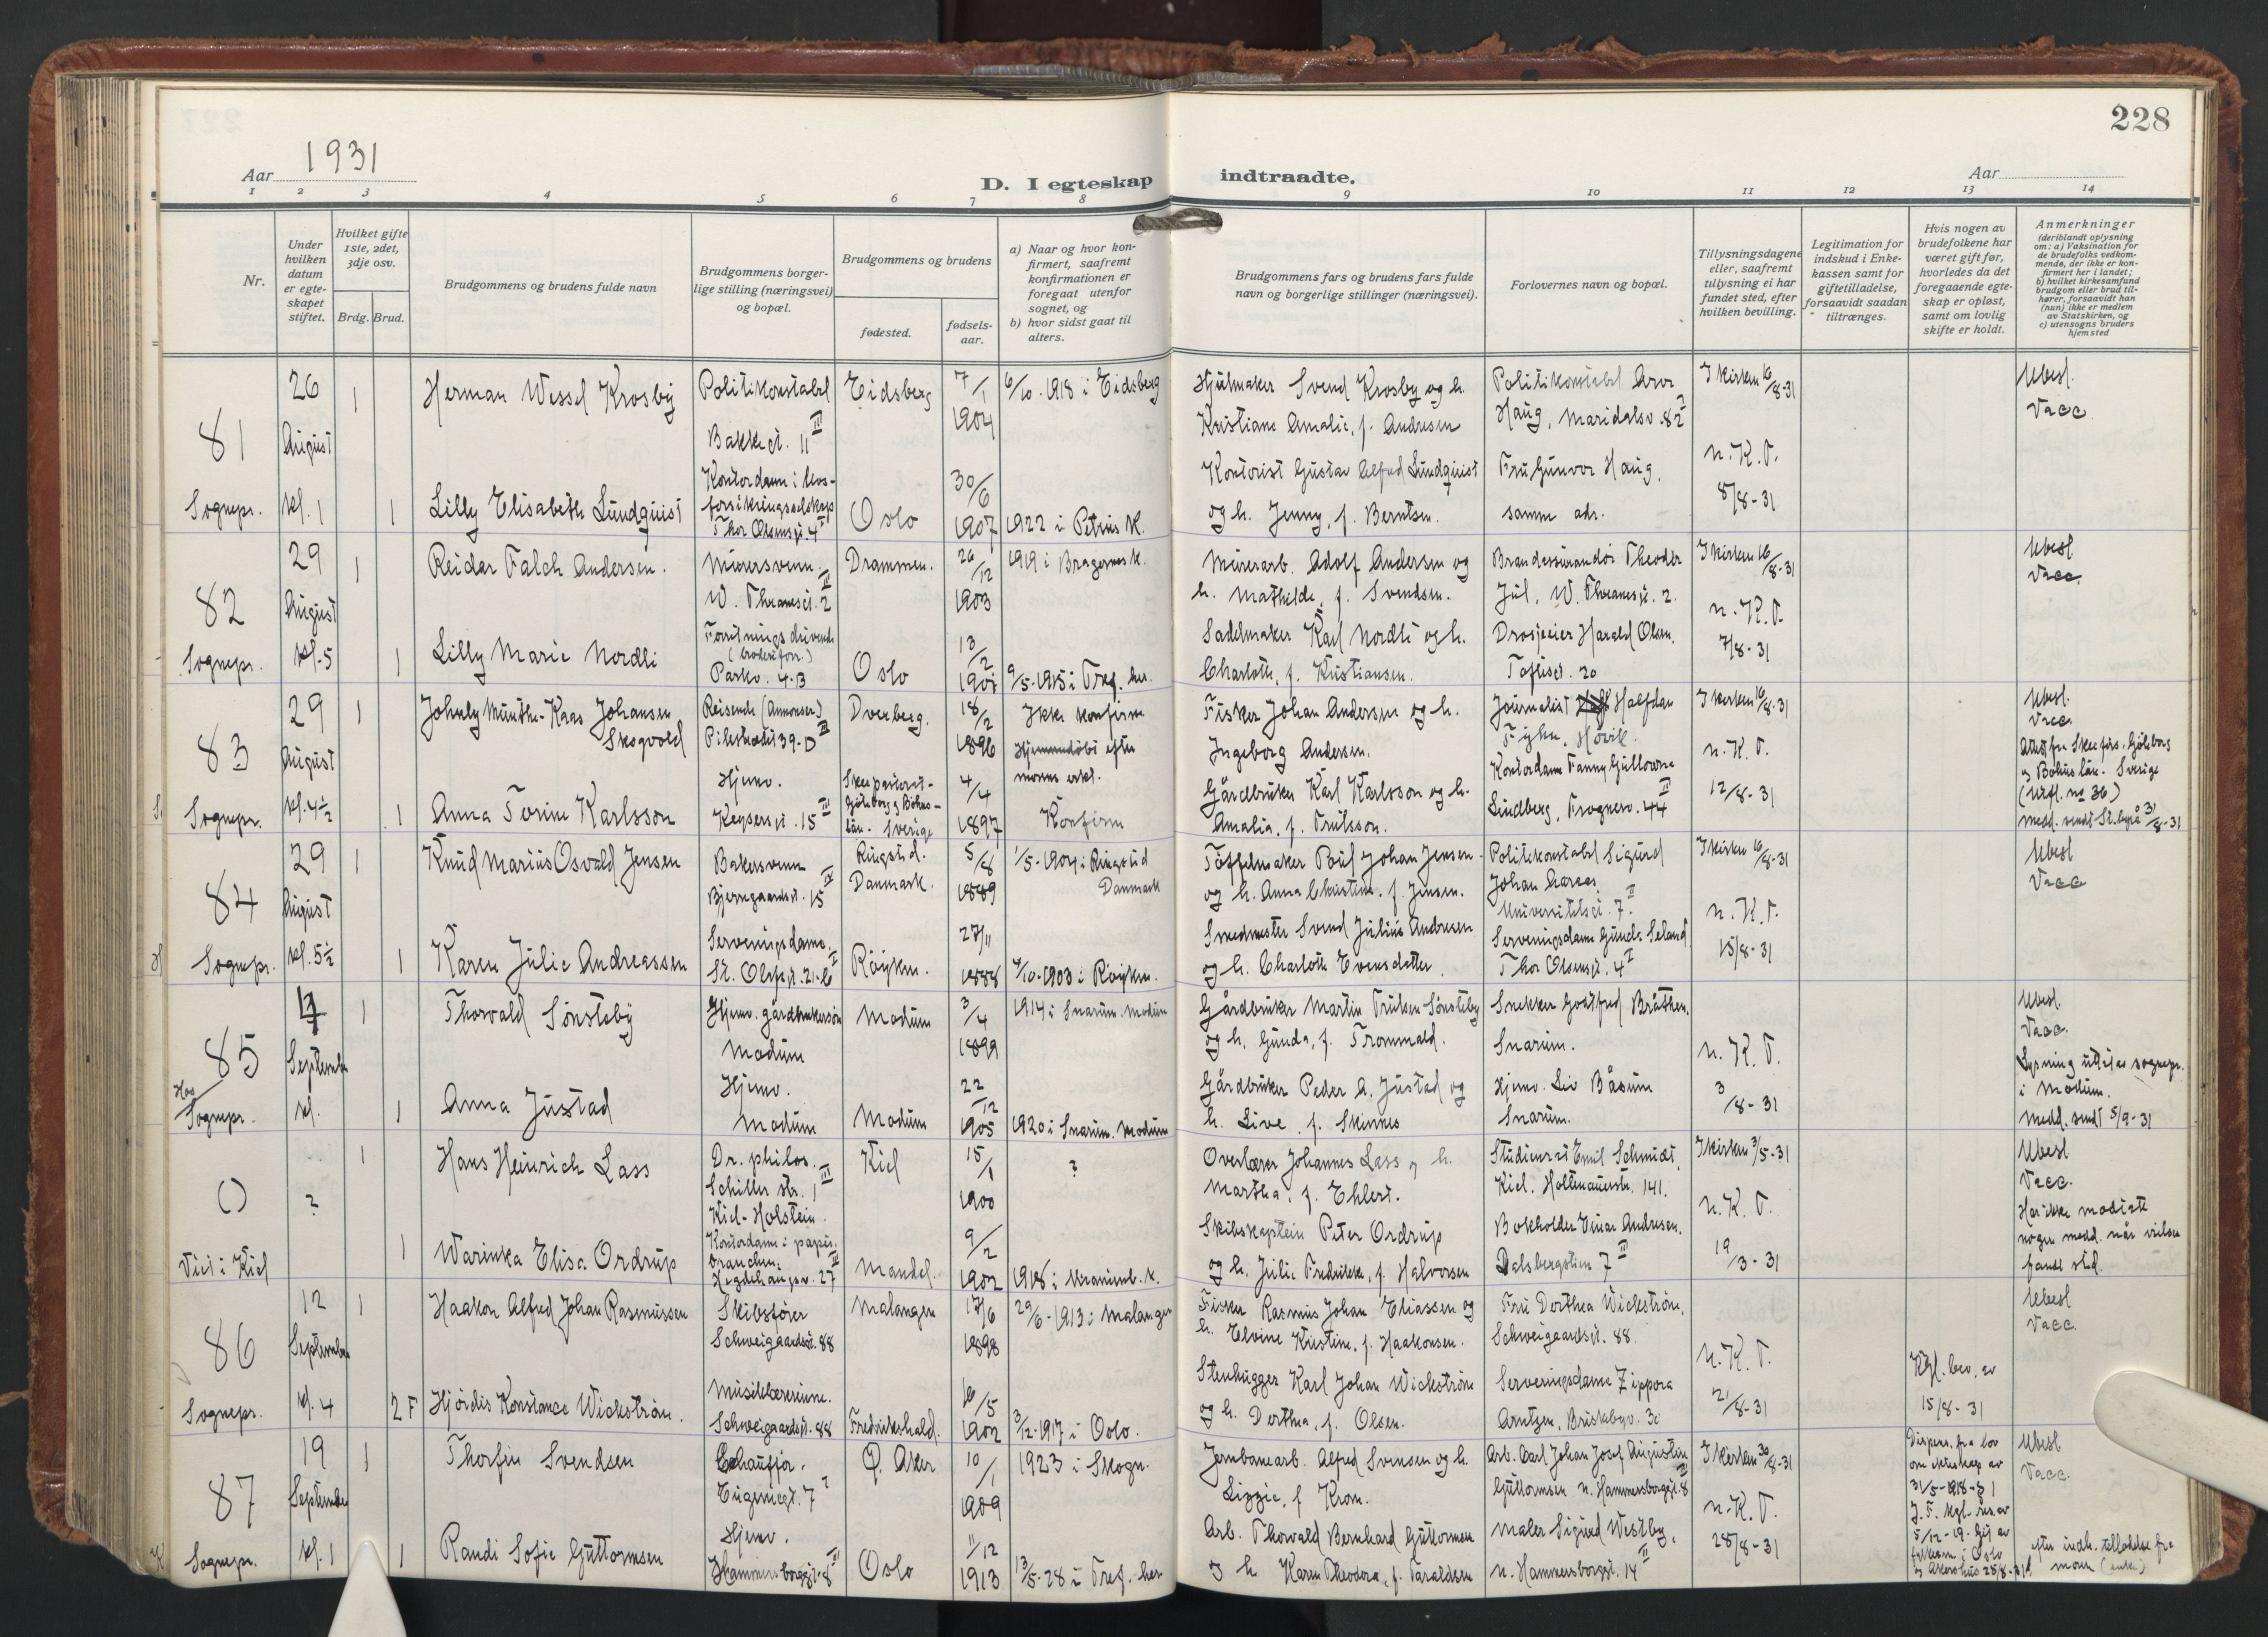 228
Aar 1931
D. I egteskap indtraadte.
Aar
1 2 3 4 5 6 7 8 9 10 11 12 13 14
Nr.
Under hvilken datum er egte-skapet stiftet.
Hvilket gifte 1ste, 2det, 3dje osv.
Brdg. Brud.
Brudgommens og brudens fulde navn
Brudgommens borger-lige stilling (næringsvei) og bopæl.
Brudgommens og brudens
fødested.
fødsels-aar.
a) Naar og hvor kon-firmert, saafremt konfirmationen er foregaat utenfor sognet, og
b) hvor sidst gaat til alters.
Brudgommens fars og brudens fars fulde navn og borgerlige stillinger (næringsvei).
Forlovernes navn og bopæl.
Tillysningsdagene eller, saafremt tillysning ei har fundet sted, efter hvilken bevilling.
Legitimation for indskud i Enke-kassen samt for giftetilladelse, forsaavidt saadan tiltrænges.
Hvis nogen av brudefolkene har været gift før, hvorledes da det foregaaende egte-skap er opløst, samt om lovlig skifte er holdt.
Anmerkninger
(deriblandt oplysning om: a) Vaksination for de brudefolks vedkom-mende, der ikke er kon-firmert her i landet; b) hvilket kirkesamfund brudgom eller brud til-hører, forsaavidt han (hun) ikke er medlem av Statskirken, og c) utensogns bruders hjemsted
81
Sognepr.
26 August kl. 1
1
Herman Wessel Krosby
Politikonstabel
Bakkegt. 11 III
Eidsberg
7/1 1904
6/10-1918 i Eidsberg
Hjulmaker Svend Krosby og h.
Kristiane Amalie, f. Andresen
Politikonstabel Arve
Haug, Maridalsv. 82
I kirken 16/8-31
n. K. T.
8/8-31
Ubesl.
Vacc
1
Lilly Elisabeth Lundquist
Kontordame i livs-
forsikringsselskap
Thor Olsensgt. 4 I
Oslo
30/6 1907
1922 i Petrus K.
Kontorist Gustav Alfred Lundquist
og h. Jenny, f. Berntsen.
Fru Gunvor Haug,
samme adr.
82
Sognepr.
29 August kl. 5
1
Reidar Falch Andersen.
Murersvenn
W. Thranesgt. 2 III
Drammen.
26/12 1903
1919 i Bragernes k.
Murerarb. Adolf Andersen og
h. Mathilde, f. Svendsen.
Brandassurandør Theodor
Jul, W. Thranesgt. 2.
I kirken 16/8-31
n. K. T.
7/8-31
Ubesl
Vacc.
1
Lilly Marie Nordli
Forretningsdrivende
(broderiforr.)
Parkv. 4-B
Oslo
13/2
9/5-1915 i Tref. her.
Sadelmaker Karl Nordli og h.
Charlotte, f. Kristiansen.
Drosjeeier Harald Olsen.
Toftesgt. 20
83
Sognepr.
29 August kl. 4½
1
Johnly Munthe-Kaas Johansen
Skogvold
Reisende (Annonser)
Pilestrædet 39-D III
Dverberg.
18/2 1896
Ikke konfirm
Hjemmedöbt efter
morens erkl.
Fisker Johan Andersen og h.
Ingeborg Andersen.
Journalist Halfdan
Høvik.
I kirken 16/8-31
n. K. T.
12/8-31
Ubesl.
Vacc.
Attest fra Skee förs. Göteborg
og Bohus län. Sverige
(Utfl. no 36)
1
Anna Torine Karlsson
Hjemv.
Keysersgt. 15 III
Skee pastorat-
Göteborg og Bohus-
län. Sverige
4/4 1897
Konfirm
Gårdbruker Karl Karlsson og h.
Amalia, f. Trulsson.
Kontordame Fanny
Lindberg, Frognerv. 44 II
84
Sognepr.
29 August kl. 5½
1
Knud Marius Osvald Jensen
Bakersvenn
Bjerregaardsgt. 15 IV
Ringsted.
Danmark.
5/8 1889
1/5-1904 i Ringsted
Danmark
Toffelmaker Johan Jensen
og h. Anna Christine, f. Jensen.
Politikonstabel Sigurd
Johan
Universitetsgt. 7. II
I kirken 16/8-31
n. K. T.
15/8-31
Ubesl
Vacc
1
Karen Julie Andreassen
Serveringsdame.
St. Olafsgt. 21-C
Röyken.
27/11 1888
4/10-1903 i Röyken.
Smedmester Svend Julius Andresen
og h. Charlotte Evensdatter.
Serveringsdame Gunda Seland
Thor Olsensgt. 4 I
85
Hos Sognepr.
September kl.
1
Thorvald Sønsteby
Hjemv. gårdbrukersøn
Modum
Modum
3/4 1899
1914 i Snarum. Modum
Gårdbruker Martin Trulsen Sønsteby
og h. Gunda, f. Frommald.
Snekker Gottfred Bråthen.
Snarum.
n. K. T.
3/8-31
Ubesl.
Vacc.
Lysning sognepr.
i Modum.
Medd. sendt 5/9-31
1
Anna Justad
Hjemv.
Modum
Modum
22/12 1905
1920 i Snarum. Modum
Gårdbruker Peder A. Justad og
h. Live, f. Skinnes
Hjemv. Liv Båsum
Snarum.
0
Viet i Kiel
?
1
Hans Heinrich Lass
Dr. philos.
Schiller str. 1 III
Kiel-Holstein.
Kiel
15/1 1900
?
Overlærer Johannes Lass og h.
Martha, f. Ehlert.
Studienrat Emil Schmidt,
Kiel. 141.
I kirken 3/5-31
n. K. T.
19/3-31
Ubesl
Vacc.
Har ikke modtatt
nogen medd. når vielsen
fandt sted.
1
Warinka Elisa Ordrup
Kontordame i papir-
branchen.
Hegdehaugsv. 27 III
Mandal.
9/2 1902
1918 i Uranienb. k.
Skibskaptein Peter Ordrup
og h. Julie Fredrikke, f. Halvorsen
Bokholder Einar Andresen.
Dalsbergstien 7 III
86
Sognepr.
12 September kl. 4
1
Haakon Alfred Johan Rasmussen
Skibsfører
Schweigaardsgt. 88
Malangen
17/6 1898
29/6-1913 i Malangen
Fisker Rasmus Johan Eliassen og
h. Elvine Kristine, f. Haakonsen.
Fru Dorthea Wickström,
Schweigaardsgt. 88.
n. K. T.
21/8-31
Kgl. bev. av
15/8-31
Ubesl
Vacc.
2 F
Hjördis Konstance Wickström.
Musiklærerinne.
Schweigaardsgt. 88
Fredrikshald.
16/5 1902
3/12-1917 i Oslo.
Stenhugger Karl Johan Wickström
og h. Dorthea, f. Olsen.
Serveringsdame Zippora
Arntzen, Briskebyv. 30
87
Sognepr.
19 September kl. 1
1
Thorfin Svendsen
Chauffør.
Eugeniegt. 7
Ø. Aker
10/1 1909
1923 i Skogn.
Jernbanearb. Alfred Svensen og h.
Lizzie, f Krom.
Arb. Carl Johan Josef Augustin
Guttormsen n. Hammersborggt. 8 II
I kirken 30/8-31
n. K. T.
28/8-31
Dispens. fra lov
om ekteskap av
31/5-1918-§ 1
J. F. kgl. res. av
5/12-19. Git av
fylkesm. i Oslo
og Akershus 25/8-31
Ubesl
Vacc.
efter indh. tilladelse fra
moren (enke)
1
Randi Sofie Guttormsen
Hjemv.
Hammersborggt. 8 II
Oslo
11/12 1913
13/5-28 i Tref. her
Arb. Thorvald Bernhard Guttormsen
og h Karen Theodora, f. Taraldsen
Maler Sigurd Westby,
n. Hammersborggt. 14 II